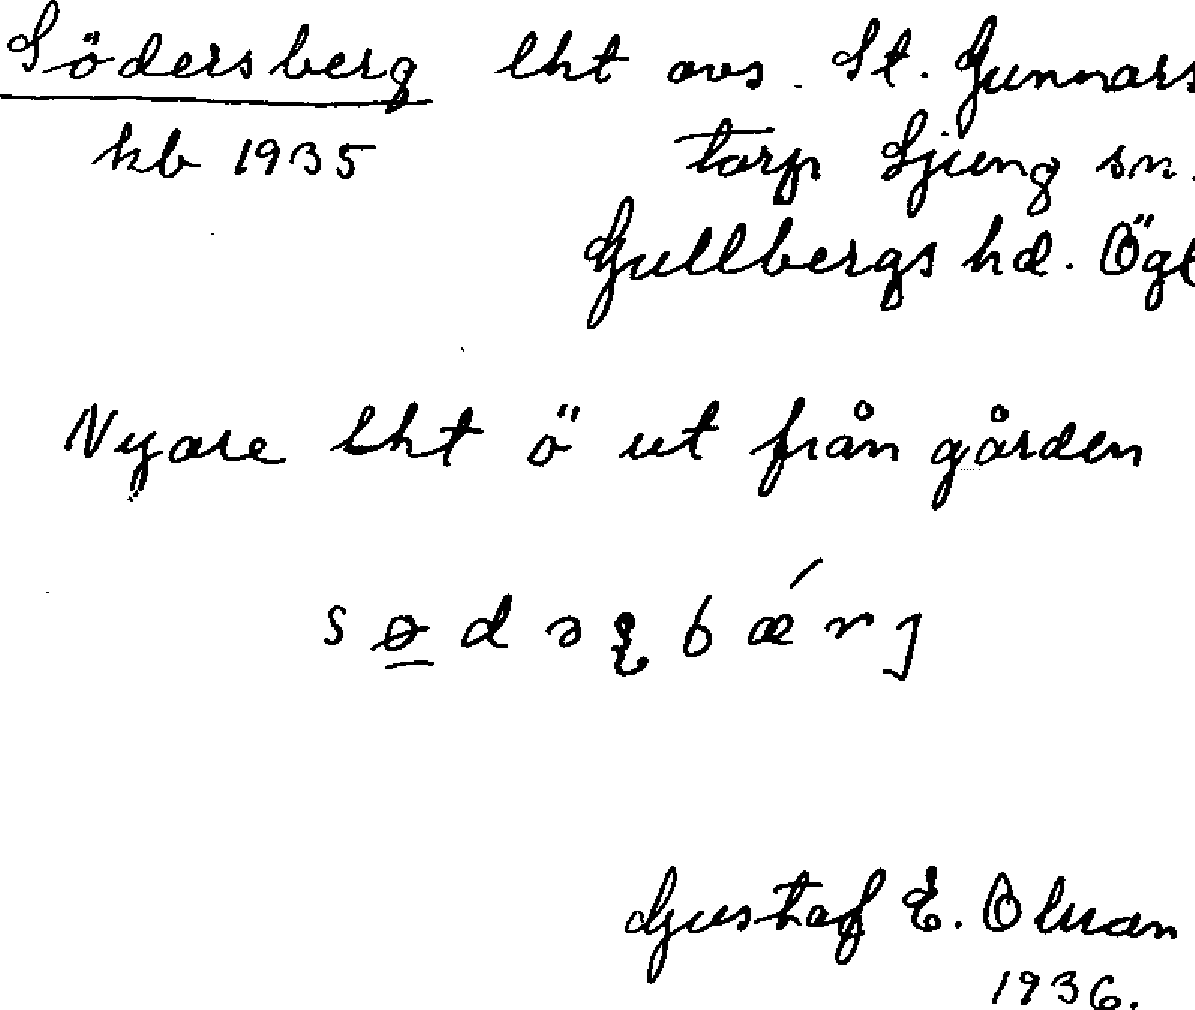 Södersberg lht avs. St. Gunnars
kb 1935 torp Ljung sn.
Gullbergs hd. Ögl
Nyare lht ö ut från gården
Gustaf E. Olsson
1936.